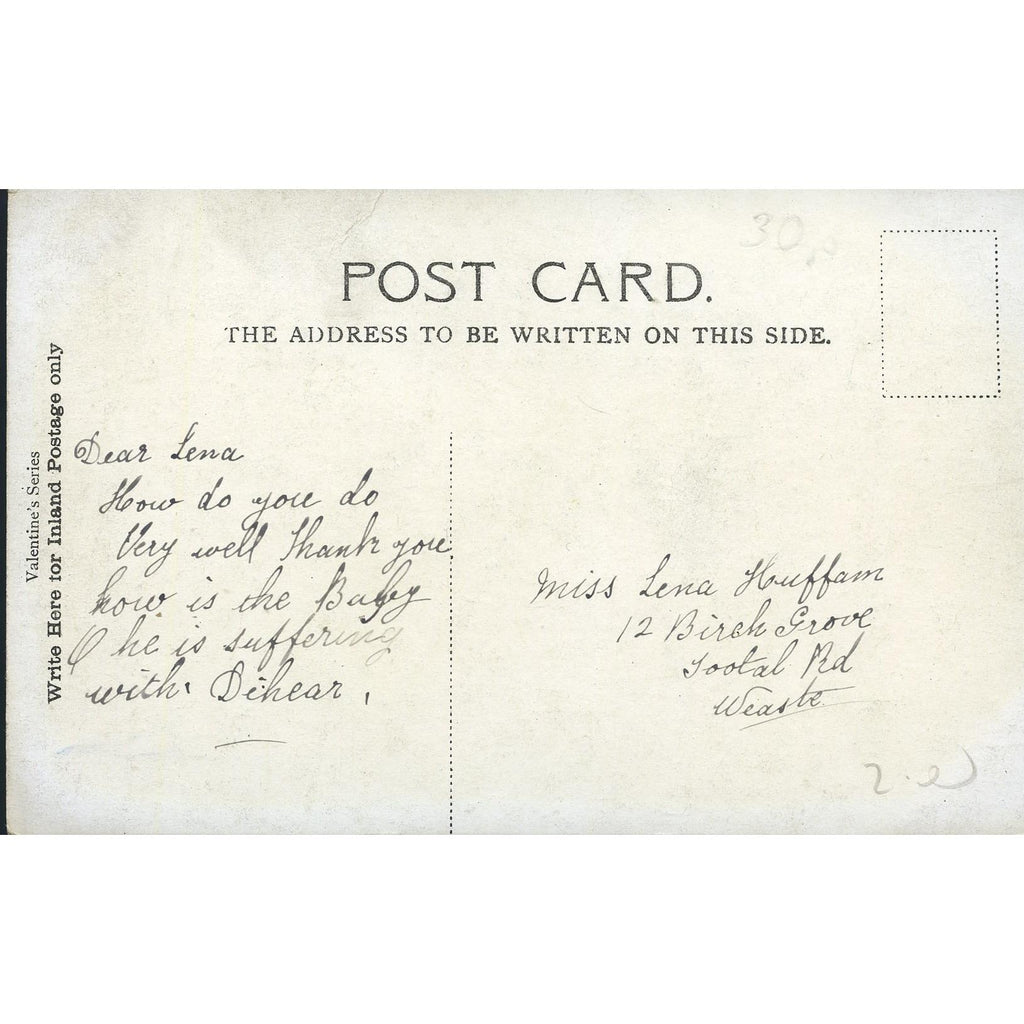 30 p
POST CARD.
THE ADDRESS TO BE WRITTEN ON THIS SIDE.
Valentine's Series
Write Here for Inland Postage only
Dear Lena
How do you do
Very well Thank you
how is the Baby
O he is suffering
with Dihear,
Miss Lena Huffam
12 Birch Grove
Tootal Rd
Weaste